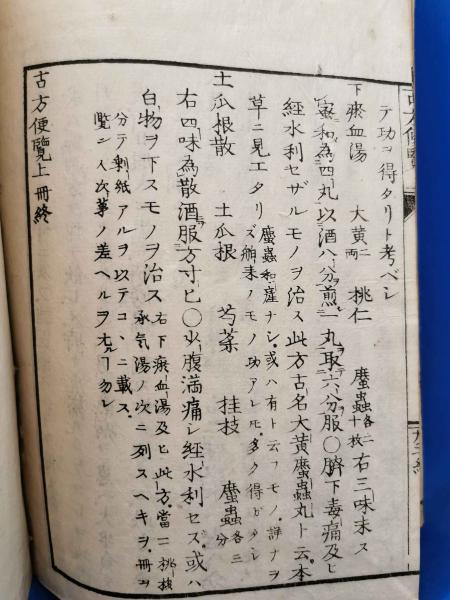 テ功ヲ得タリト考ベシ
下瘀血湯　大黄二両　桃仁　䗪蟲各二十枚　右三味末ス
蜜和為四丸以酒八分煎一丸取六分服〇臍下毒痛及ヒ
経水利セザルモノヲ治ス此方古名大黄䗪蟲丸ト云本
草ニ見エタリ　䗪蟲和産ナシ或ハ有ト云フモノ詳ナラ
ズ舶来ノモノ功アレ𪜈多ク得ガタシ
土瓜根散　土瓜根　芍薬　桂枝　䗪蟲各三分
右四味為散酒服方寸匕〇少腹満痛シ経水利セス或ハ
白物ヲ下スモノヲ治ス　右下瘀血湯及ヒ此方當ニ桃核
承気湯ノ次ニ列スヘキヲ冊ヲ
分テ剰紙アルヲ以テココニ載ス
覧ン人次第ノ差ヘルヲ尤ルコト勿レ
古方便覧上冊終